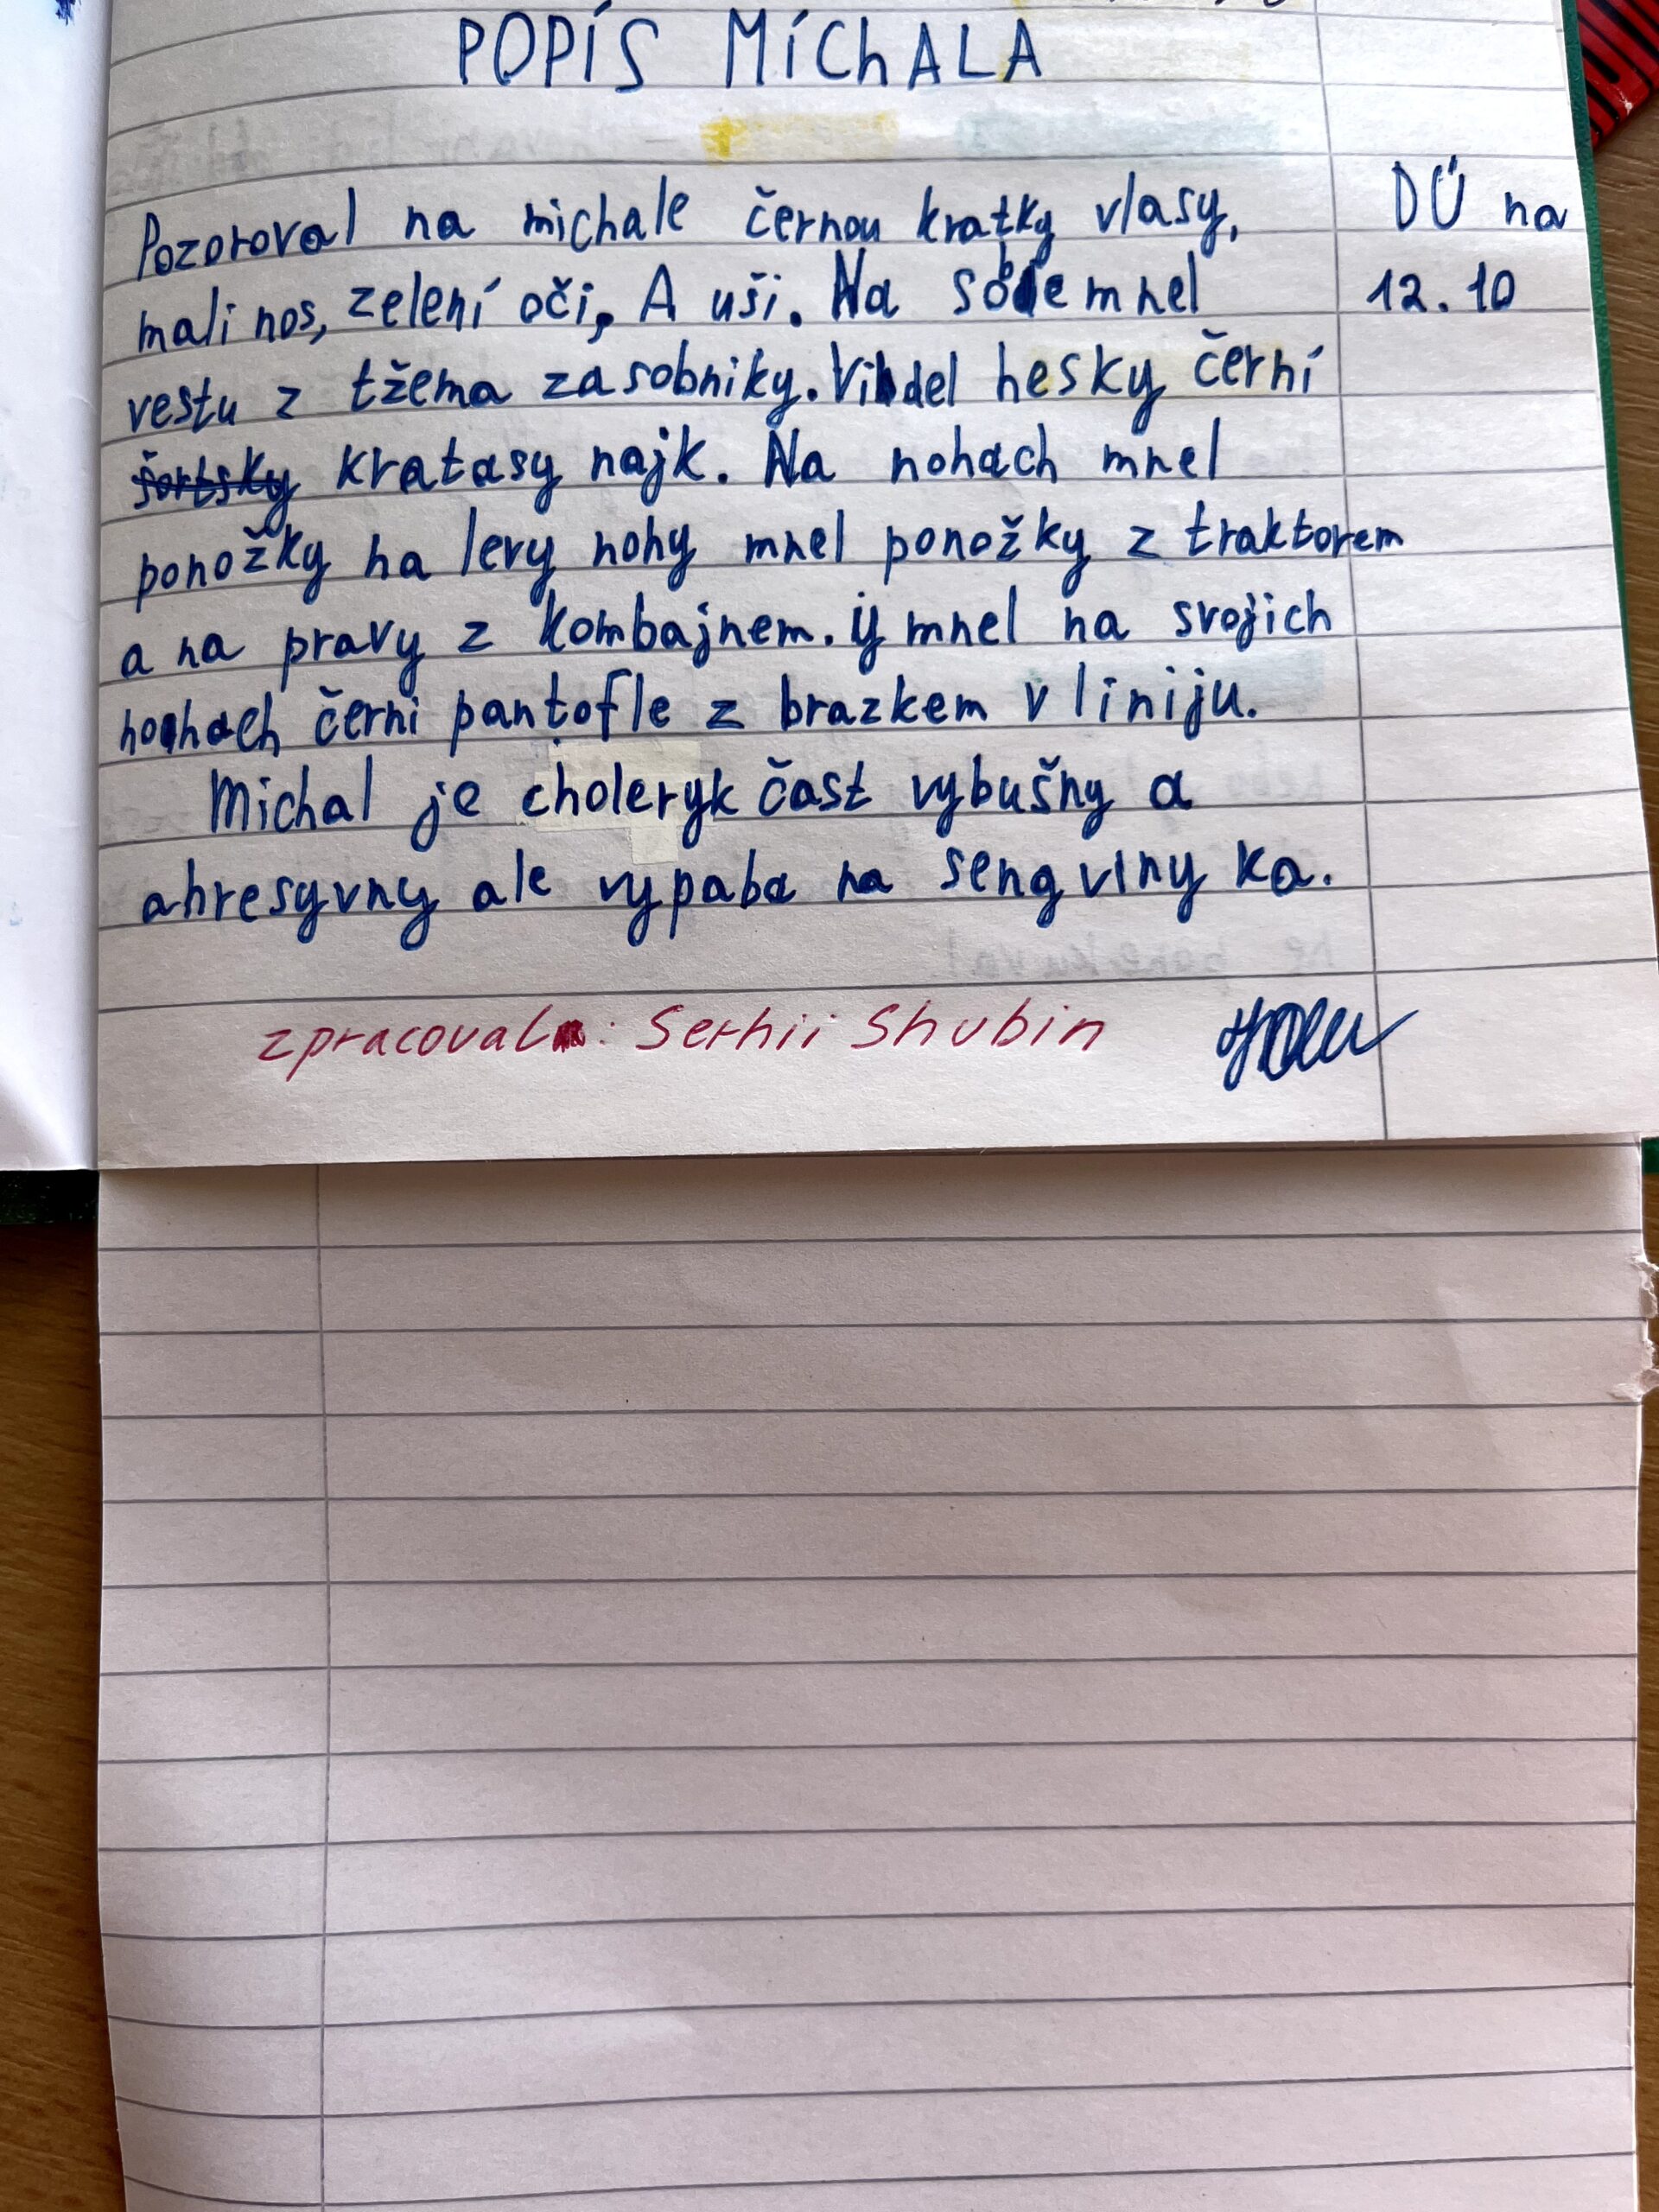 POPÍS MÍChALA
Pozoroval na michale černou kratky vlasy,
mali nos, zelení oči, A uši. Na sobe mnel
vestu z tžema zasobniky. Viděl hesky černí
šortsky kratasy najk. Na nohach mnel
ponožky na levy nohy mnel ponožky z traktorem
a na pravy z kombajnem. ij mnel na svojich
nohach černi pantofle z brazkem v liniju.
Michal je choleryk čast vybušny a
ahresyvny ale vypaba na sengviny ka.
DÚ na
12.10
zpracoval: Serhii Shubin